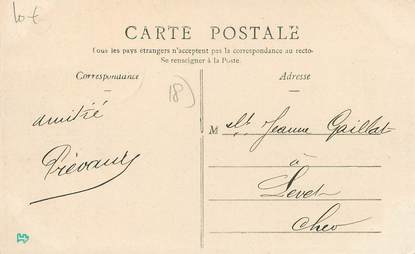 10 €
CARTE POSTALE
Tous les pays étrangers n'acceptent pas la correspondance au recto.
Se renseigner à la Poste.
Correspondance
Adresse
18)
amitié
Prévaud
M elle Jeanne Gaillat
à
Levet
Cher